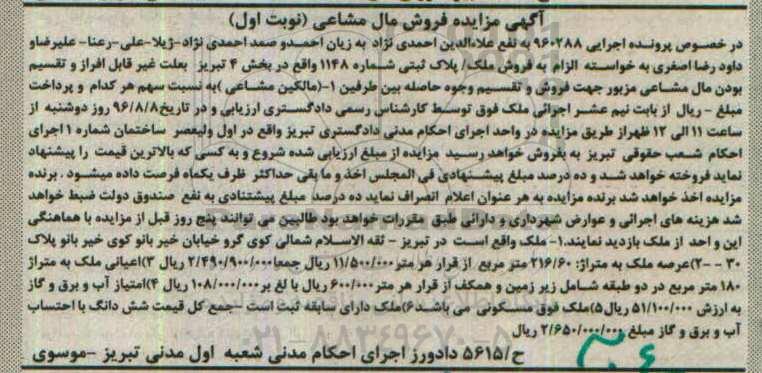 آگهی مزایده فروش مال مشاعی (نوبت اول)
در خصوص پرونده اجرایی ۹۶۰۲۸۸ به نفع علاءالدین احمدی نژاد به زیان احمدو صمد احمدی نژاد-ژیلا-علی-رعنا- علیرضاو
داود رضا اصغری به خواسته الزام به فروش ملک/ پلاک ثبتی شماره ۱۱۴۸ واقع در بخش ۴ تبریز بعلت غیر قابل افراز و تقسیم
بودن مال مشاعی مزبور جهت فروش و تقسیم وجوه حاصله بین طرفین ۱-(مالکین مشاعی )به نسبت سهم هر کدام و پرداخت
مبلغ - ریال از بابت نیم عشر اجرائی ملک فوق توسط کارشناس رسمی دادگستری ارزیابی و در تاریخ۹۶/۸/۸ روز دوشنبه از
ساعت ۱۱ الی ۱۲ ظهراز طریق مزایده در واحد اجرای احکام مدنی دادگستری تبریز واقع در اول ولیعصر ساختمان شماره ۱ اجرای
احکام شعب حقوقی تبریز به بفروش خواهد رسید مزایده از مبلغ ارزیابی شده شروع و به کسی که بالاترین قیمت را پیشنهاد
نماید فروخته خواهد شد و ده درصد مبلغ پیشنهادی فی المجلس اخذ و ما بقی حداکثر ظرف یکماه فرصت داده میشود . برنده
مزایده اخذ خواهد شد برنده مزایده به هر عنوان اعلام انصراف نماید ده درصد مبلغ پیشتنادی به نفع صندوق دولت ضبط خواهد
شد هزینه های اجرائی و عوارض شهرداری و دارائی طبق مقررات خواهد بود طالبین می توانند پنج روز قبل از مزایده با هماهنگی
این و احد از ملک بازدید نمایند.۱- ملک واقع است در تبریز - ثقه الاسلام شمالی کوی گرو خیابان خیر بانو کوی خیر بانو پلاک
۳۰ --۲)عرصه ملک به متراژ: ۲۱۶/۶۰ متر مربع از قرار هر متر ۱۱/۵۰۰/۰۰۰ ریال جمعا۲/۴۹۰/۹۰۰/۰۰۰ ریال ۳)اعیانی ملک به متراژ
۱۸۰ متر مربع در دو طبقه شامل زیر زمین و همکف از قرار هر متر۶۰۰/۰۰۰ ریال با لغ بر ۱۰۸/۰۰۰/۰۰۰ ریال ۴)امتیاز آب و برق و گاز
به ارزش ۵۱/۱۰۰/۰۰۰ ریال۵)ملک فوق مسکونی می باشد۶)ملک دارای سابقه ثبت است - جمع کل قیمت شش دانگ با احتساب
آب و برق و گاز مبلغ ۲/۶۵۰/۰۰۰/۰۰۰ ریال
ح/۵۶۱۵ دادورز اجرای احکام مدنی شعبه اول مدنی تبریز -موسوی
۰۲۱-۸۸۳۴۹۶۷۰-۵